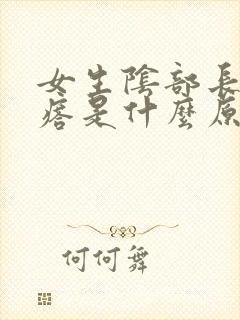 女生陰部長
痞是什麼原
何何舞